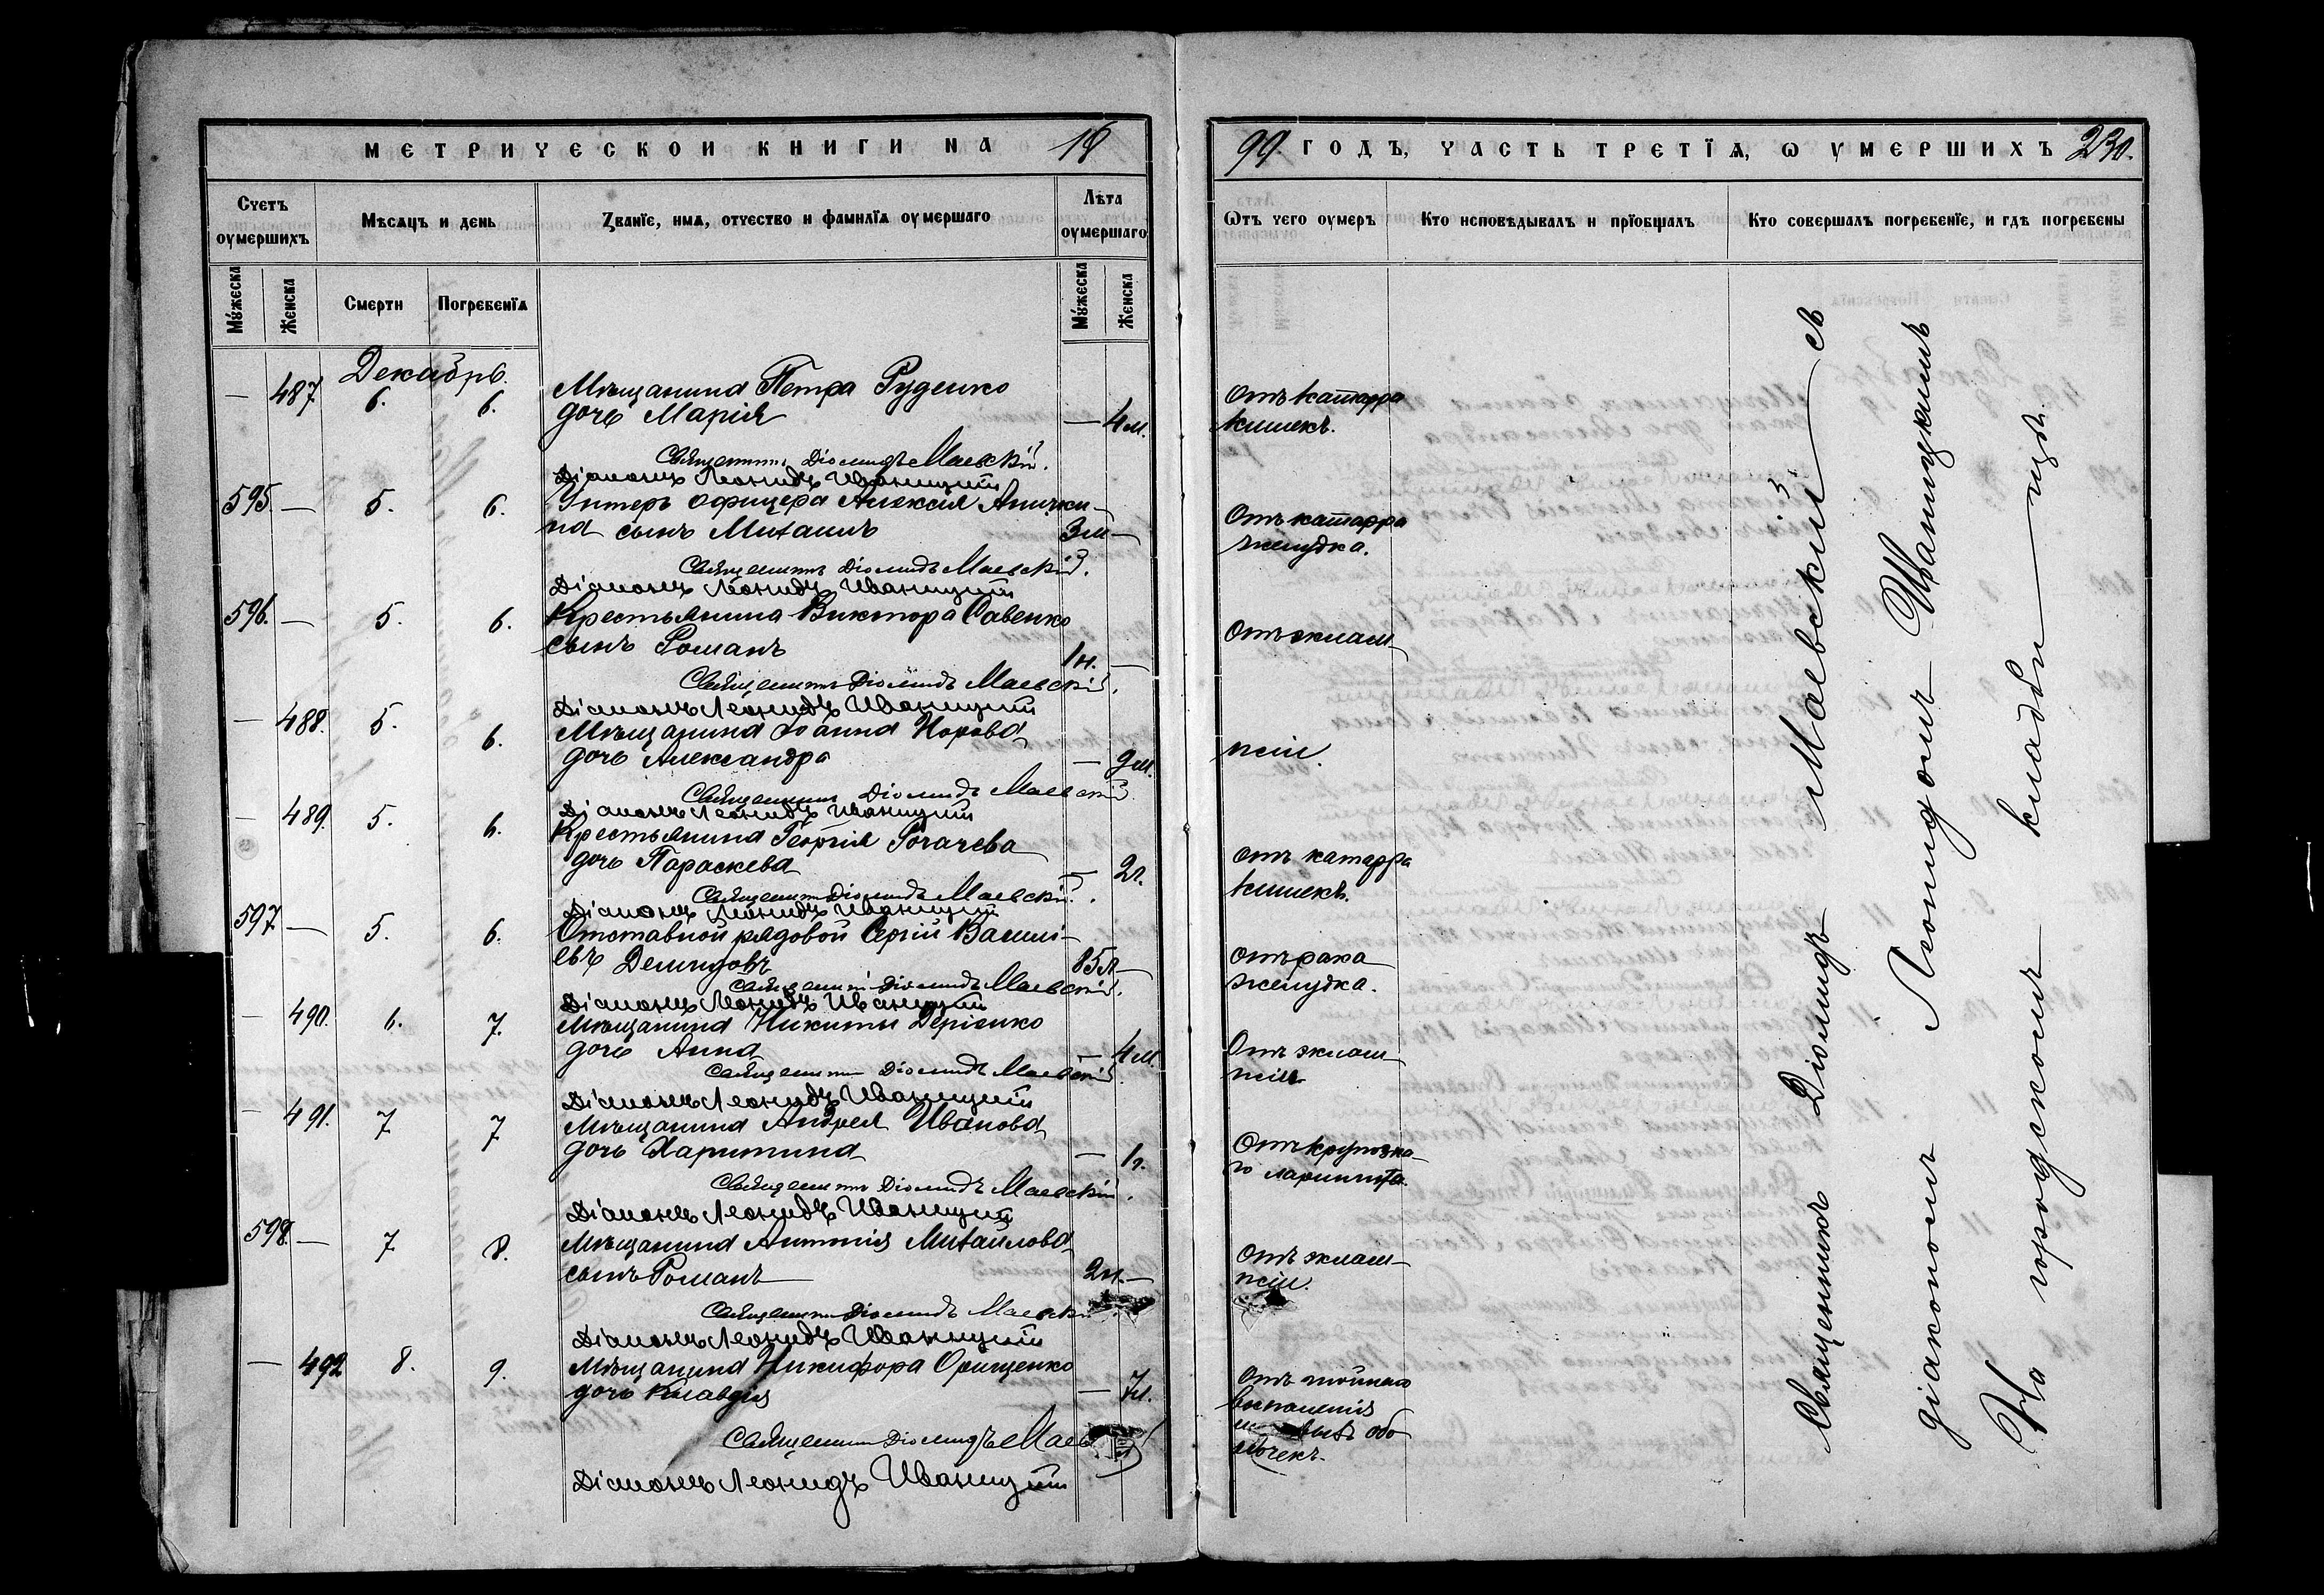 МЕТРИЧЕСКОЙ КНИГИ НА 18
99. ГОДЪ, ЧАСТЬ ТРЕТЇѦ, Ѡ УМЕРШИХЪ 230.
Счетъ оумершихъ
Мѣсѧцъ и день
Званїе, имѧ, отчество и фамилїѧ оумершаго
Лѣта оумершаго
Ѿтъ чего оумеръ
Кто исповѣдывалъ и прїобщалъ
Кто совершалъ погребенїе, и гдѣ погребены
Мужеска
Женска
Смерти
Погребенїѧ
Мужеска
Женска
Декабрь.
— 487. 6. 6. Мѣщанина Петра Руденко
дочь Марія — 4 м.
Отъ катарра
кишекъ.
Священникъ Діомидъ Маевскій.
Діаконъ Леонидъ Иваницкій
595. — 5. 6. Унтеръ офицера Алексія Анички-
на сынъ Михаилъ 3 м —
Отъ катарра
желудка.
Священникъ Діомидъ Маевскій.
Діаконъ Леонидъ Иваницкій
596. — 5. 6. Крестьянина Виктора Савенко
сынъ Романъ 1 н. —
Отъ эклам-
Священникъ Діомидъ Маевскій.
Діаконъ Леонидъ Иваницкій
— 488. 5. 6. Мѣщанина Іоанна
дочь Александра — 9 м.
псіи.
Священникъ Діомидъ Маевскій
Діаконъ Леонидъ Иваницкій
— 489. 5. 6. Крестьянина Георгія Рогачева
дочь Параскева — 2 г.
Отъ катарра
кишекъ.
Священникъ Діомидъ Маевскій.
Діаконъ Леонидъ Иваницкій
597 — 5. 6. Отставной рядовой Сергій Василі-
евъ Демидовъ 85 л —
Отъ рака
желудка.
Священникъ Діомидъ Маевскій.
Діаконъ Леонидъ Иваницкій
— 490. 6. 7. Мѣщанина Никиты
дочь Анна — 4 м.
Отъ эклам-
псіи
Священникъ Діомидъ Маевскій
Діаконъ Леонидъ Иваницкій
— 491. 7 7 Мѣщанина Андрея Иванова
дочь Харитина — 1 г.
Отъ крупозна-
го ларингита.
Священникъ Діомидъ Маевскій.
Діаконъ Леонидъ Иваницкій
598. — 7 8. Мѣщанина Антонія Михайлова
сынъ Романъ 2 н. —
Отъ эклам-
псіи.
Священникъ Діомидъ Маевскій
Діаконъ Леонидъ Иваницкій
— 492 8. 9. Мѣщанина Никифора Орищенко
дочь Клавдія —
Отъ гнойнаго
воспаленія
обо-
лочекъ.
Священникъ Діомидъ
Діаконъ Леонидъ Иваницкій
Священникъ Діомидъ Маевскій съ
діакономъ Леонидомъ Иваницкимъ
На городскомъ кладбищѣ.